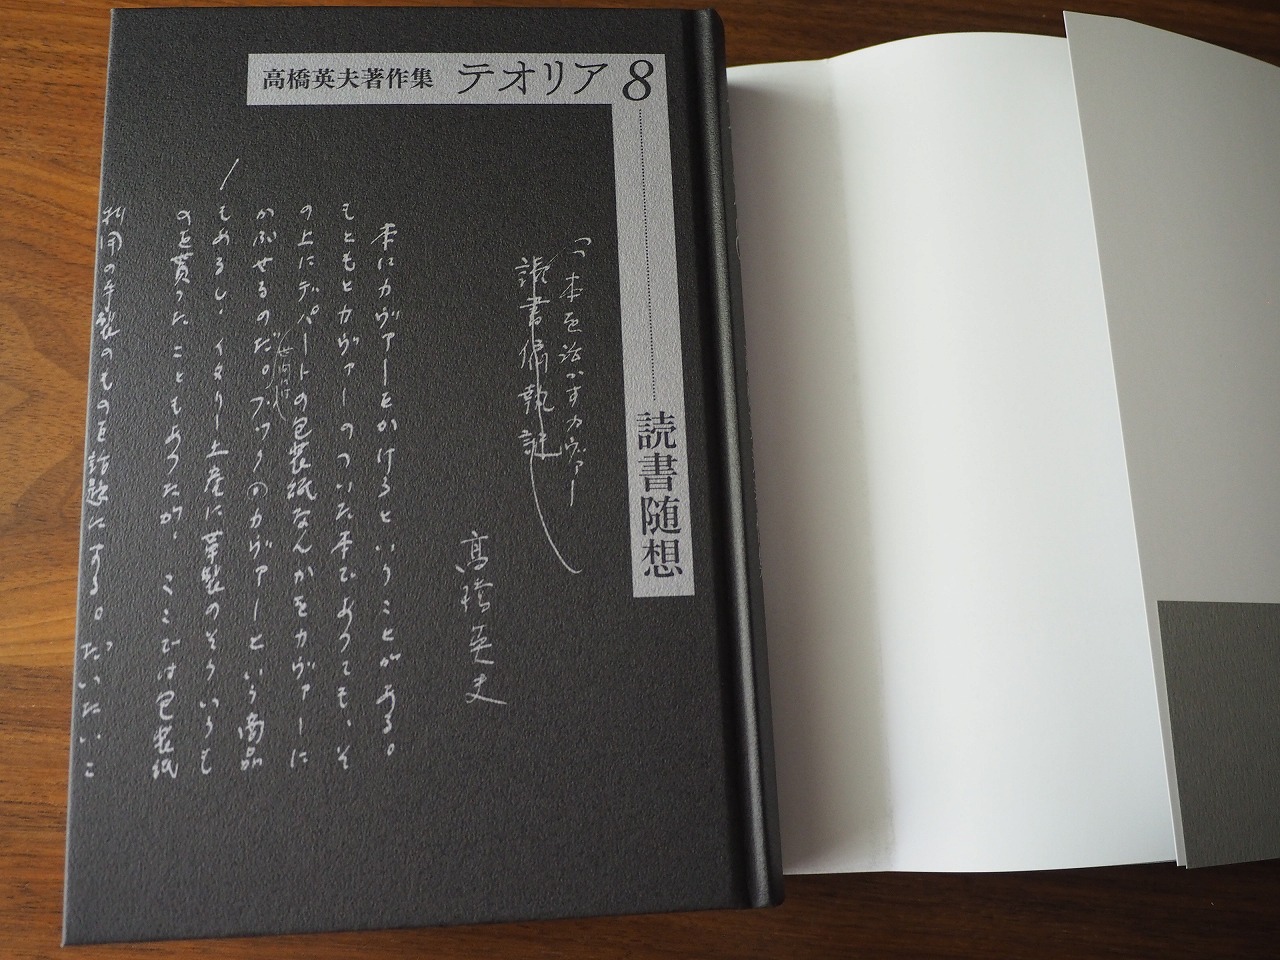 高橋英夫著作集 テオリア 8
読書随想
「本を活かすカヴァー
読書偏執誌
高橋英夫
本にカヴァーをかけるということがある。
もともとカヴァーのついた本であっても、そ
の上にデパートの包装紙なんかをカヴァーに
かぶせるのだ。ブックカヴァーという商品
もあるし、イタリー土産に革製のそういうも
のを貰ったこともあったが、ここでは包装紙
利用の手製のものを話題にする。だいたいこ